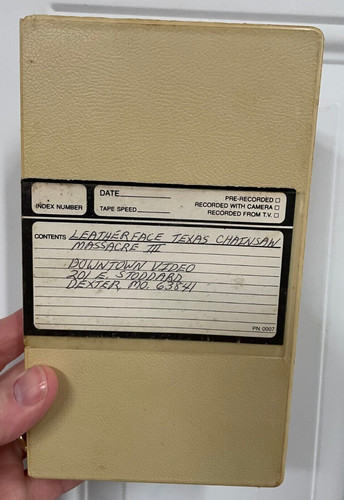 INDEX NUMBER
DATE
TAPE SPEED
PRE-RECORDED
RECORDED WITH CAMERA
RECORDED FROM T.V.
CONTENTS LEATHERFACE TEXAS CHAINSAW
MASSACRE III
DOWNTOWN VIDEO
201 E. STODDARD
DEXTER MO. 63841
PN 0007